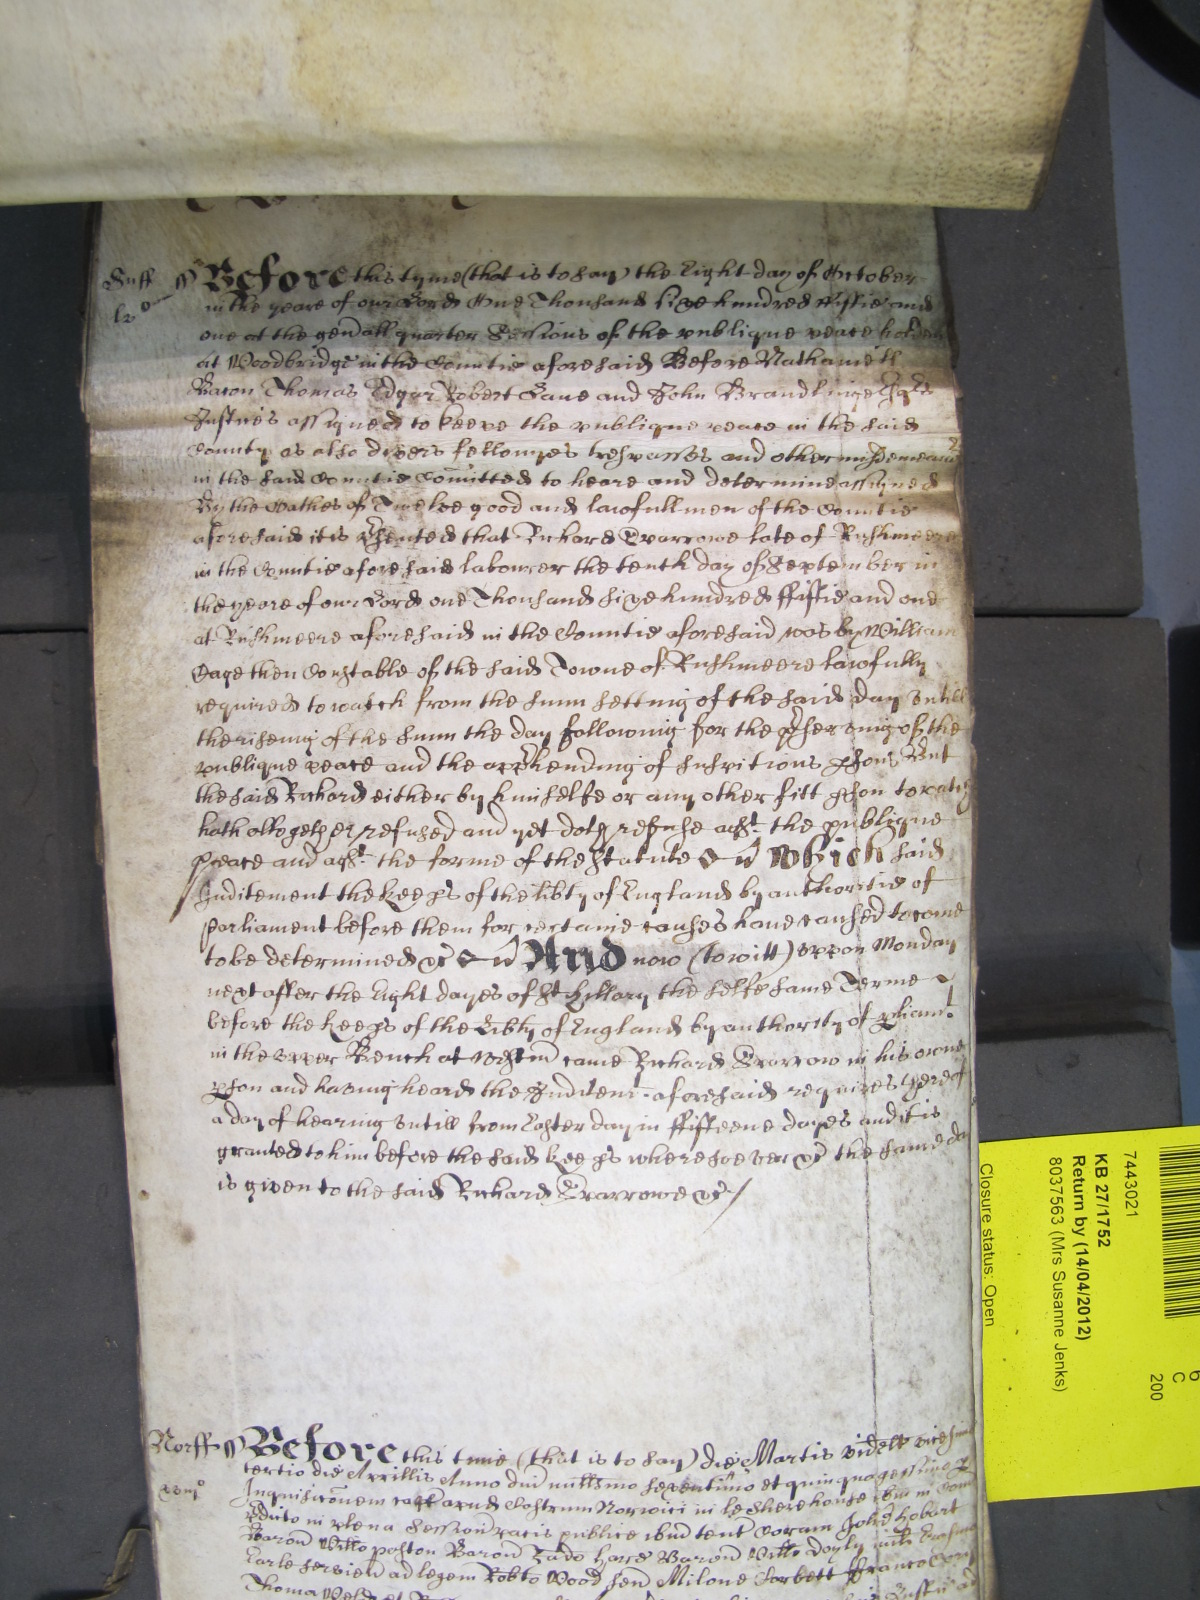 Suff ss Before this tyme (that is to say) the Eight day of October
in the yeare of our Lord One Thousand sixe hundred fiftie and
one at the gen̄all quarter Sessions of the publique peace holden
at Woodbridge in the Countie aforesaid Before Nathaniell
Bacon Thomas Edgar Robert Lane and John Brandlinge Esqrs
Justices assigned to keepe the publique peace in the said
County as also divers fellonyes trespasses and other misdemeanrs
in the said Countie com̄itted to heare and determine assigned
By the Oathes of Twelve good and lawfull men of the Countie
aforesaid it is p̄sented that Richard Barrowe late of Rushmeere
in the Countie aforesaid labourer the tenth day of September in
the yeare of our Lord one Thousand sixe hundred fiftie and one
at Rushmeere aforesaid in the Countie aforesaid was by William
Cage then Constable of the said Towne of Rushmeere lawfully
required to watch from the sunn setting of the said day untill
the riseing of the sunn the day following for the p̄serving of the
publique peace and the app̄hending of suspitious p̱sons But
the said Richard either by himselfe or any other fitt p̱son to watch
hath altogether refused and yet doth refuse agst the publique
peace and agst the forme of the Statute &c Which said
Inditement the Keep̱s of the lib̄ty of England by authoritie of
Parliament before them for certaine causes have caused to come
to be determined &c And now (to witt) uppon Monday
next after the Eight dayes of St Hillary the selfe same Terme
before the Keep̱s of the Lib̄ty of England by authority of p̱liamt
in the upper Bench at Westm̄ came Richard Barrow in his owne
p̱son and having heard the Inditemt aforesaid requires thereof
a day of hearing untill from Easter day in fifteene dayes and it is
granted to him before the said Keep̱s wheresoever &c the same day
is given to the said Richard Barrowe &c
Norff ss Before this time (that is to say) die Martis videlt vicesimo
tertio die Aprillis Anno dn̄i millimo sexcentimo et quinquagesimo
Inquisitionem capt apud Castrum Norwici in le Sherehouse ib̄m in Com̄
p̄dicto in plena Session̄ pacis publice ib̄m tent coram Joh̄e Hobart
Baron̄ Willo paston Baron̄ Rado Hare Baron̄ Willo Doyly milit Erasmo
Earle servien̄ ad legem Robto Wood sen̄ Milone Corbett
7443021
KB 27/1752
Return by (14/04/2012)
8037563 (Mrs Susanne Jenks)
Closure status: Open
6
C
200